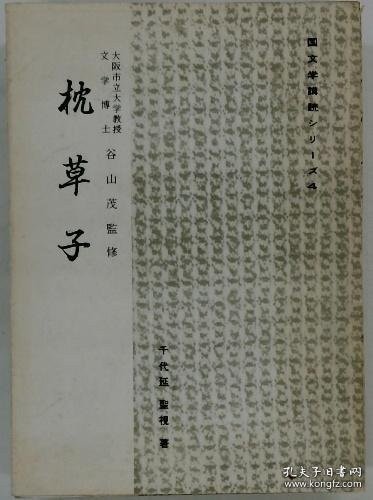 国文学講読シリーズ4
千代延 聖視 著
大阪市立大学教授
文学博士
谷山茂監修
枕草子
孔夫子旧书网
www.kongfz.com